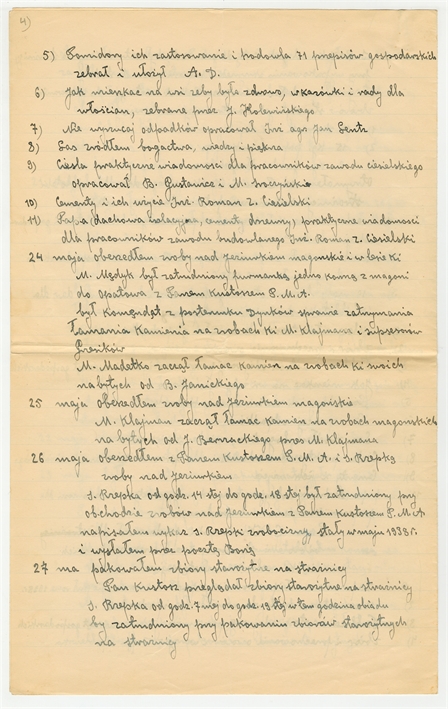 4)
5) Pomidory ich zastosowanie i hodowla 71 przepisów gospodarskich
zebrał i ułożył A. D.
6) Jak mieszkać na wsi żeby było zdrowo, wskazówki i rady dla
włościan, zebrane przez J. Holewińskiego
7) Nie wyrzucaj odpadków opracował Inż agr Jan Lentz
8) Las źródłem bogactwa, wiedzy i piękna
9) Cieśla praktyczne wiadomości dla pracowników zawodu ciesielskiego
opracował B. Gustawicz i M.
10) Cementy i ich użycie Inż. Roman z. Ciesielski
11) Papa (dachowa izolacyjna, cement, drzewny) praktyczne wiadomości
dla pracowników zawodu budowlanego Inż. Roman z. Ciesielski
24 maja obeszedłem zroby nad Jeziurkiem magońskie i w lesie Ki
M. Mędyk był zatrudniony furmanką jedno konną z magoni
do Opatowa z Panem Kustoszem P. M. A.
był Komendat z posterunku Dynków sprawie zatrzymania
łamania Kamienia na zrobach Ki M. Klajmana i
M. Madetko zaczął łamać Kamien na zrobach Ki moich
nabytych od B. Janickiego
25 maja obeszedłem zroby nad Jeziurkiem magońskie
M. Klajman zaczął łamać Kamien na zrobach magonskich
nabytych od J. Bernackiego przes M. Klajmana
26 maja obeszedłem z Panem Kustoszem P. M. A. i S. Rzepką
zroby nad Jeziurkiem
S. Rzepka od godz. 14 stej do godz. 18 stej był zatrudniony przy
obchodzie zrobów nad Jeziurkiem z Panem Kustoszem P. M. A
napisałem wykaz S. Rzepki robocizny, stały w maju 1938 r.
i wysłałem przez pocztę
27 ma pakowałem zbiory starożytne na strażnicy
Pan Kustosz przeglądał zbiory starożytne na strażnicy
S. Rzepka od godz. 7 mej do godz. 19 stej w tem godzina obiadu
by zatrudniony przy pakowaniu zbiorów starożytnych
na strażnicy